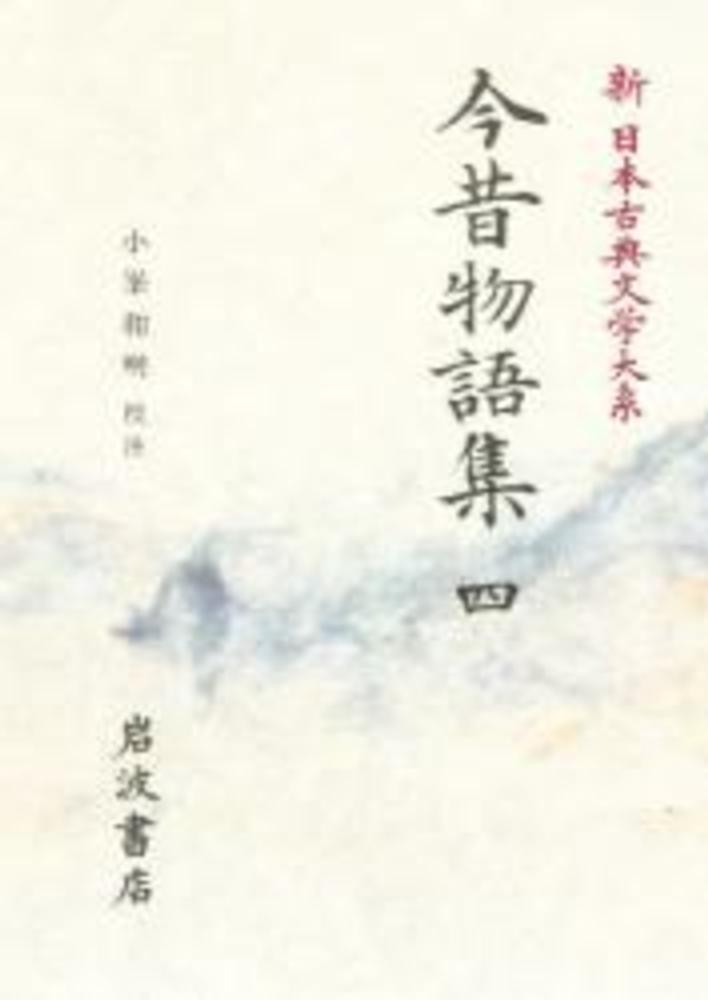 新 日本古典文学大系
今昔物語集 四
小峯和明 校注
岩波書店